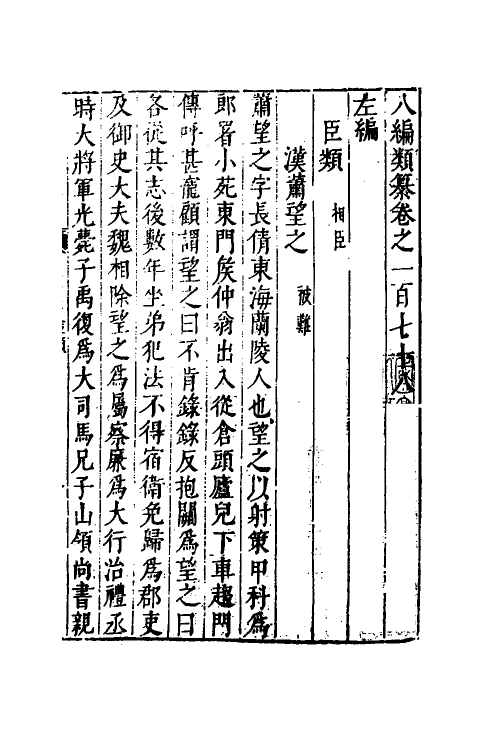 八編類纂卷之一百七十八
左編
臣類 相臣
漢蕭望之 被難
蕭望之字長倩東海蘭陵人也望之以射策甲科爲
郎署小苑東門侯仲翁出入從倉頭廬兒下車趨門
傳呼甚寵顧謂望之曰不肯錄錄反抱關爲望之曰
各從其志後數年坐弟犯法不得宿衛免歸爲郡吏
及御史大夫魏相除望之爲屬察廉爲大行治禮丞
時大將軍光薨子禹復爲大司馬兄子山領尚書親